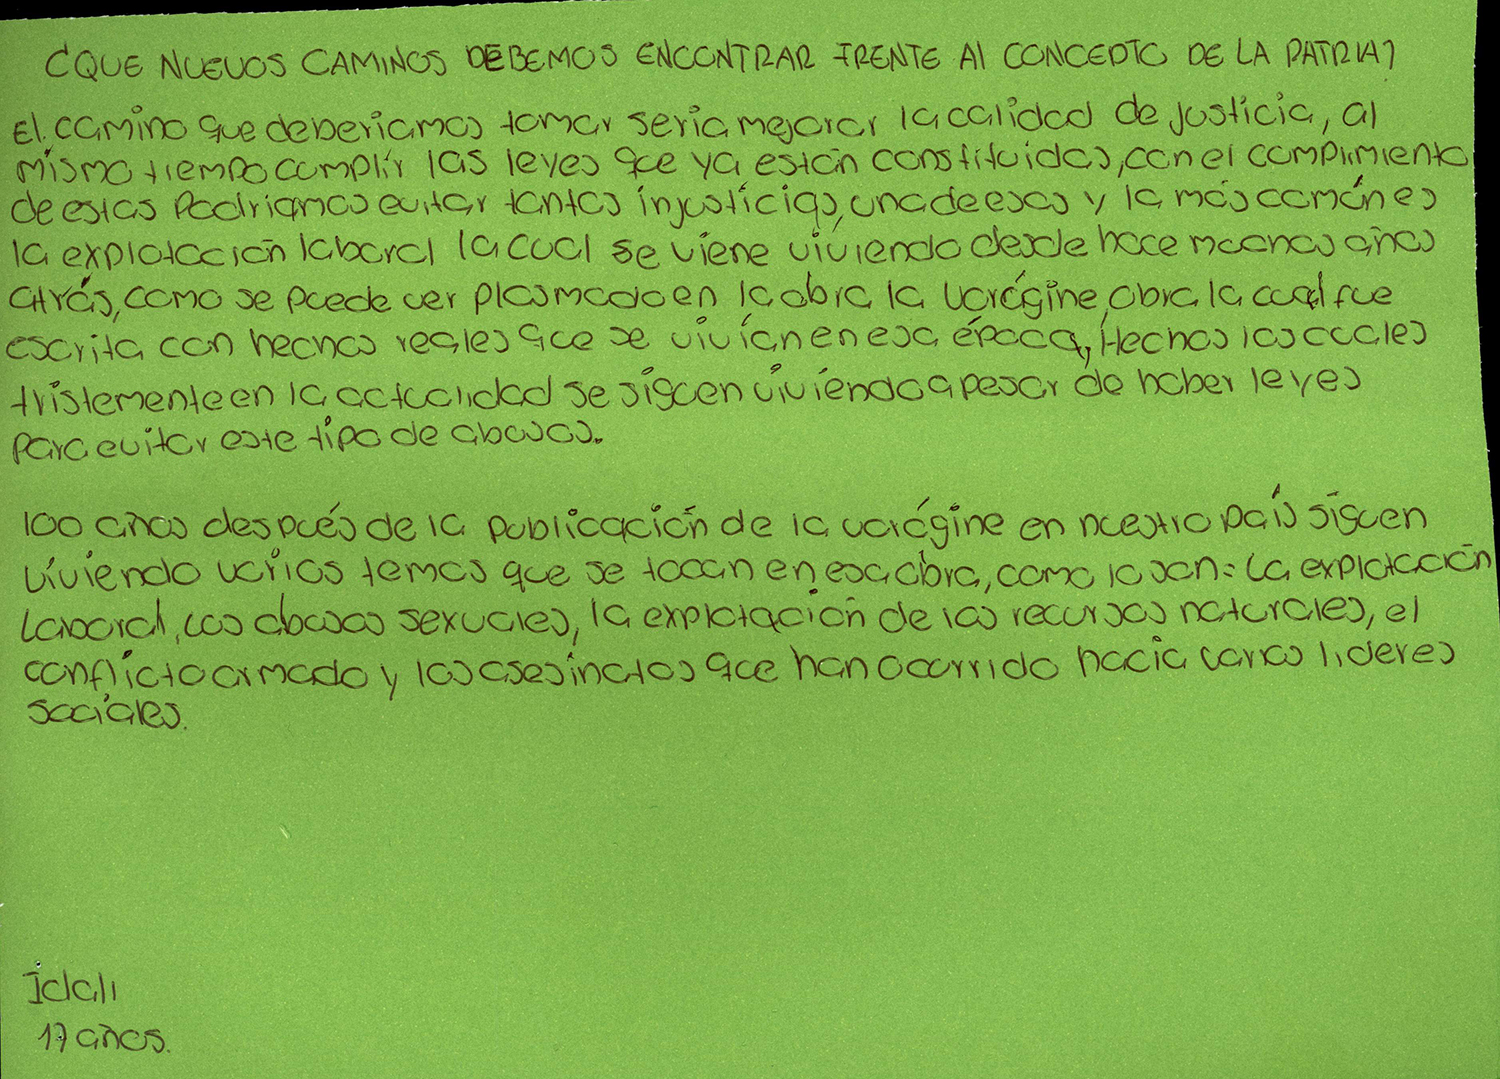 ¿QUE NUEVOS CAMINOS DEBEMOS ENCONTRAR FRENTE Al CONCEPTO DE LA PATRIA?
El camino que deberiamos tomar seria mejorar la calidad de justicia, al
mismo tiempo cumplir las leyes que ya están constituidas, con el cumplimiento
de estas Podriamos evitar tantas injusticias, una de esas y la más común es
la explotación laboral la cual se viene viviendo desde hace muchos años
atrás, como se puede ver plasmado en la obra la Vorágine, obra la cual fue
escrita con hechos reales que se vivían en esa época, Hechos los cuales
tristemente en la actualidad se siguen viviendo a pesar de haber leyes
para evitar este tipo de abusos.
100 años después de la publicación de la vorágine en nuestro país siguen
viviendo varios temas que se tocan en esa obra, como lo son: La explotación
Laboral, Los abusos sexuales, la explotación de los recursos naturales, el
conflicto armado y los asesinatos que han ocurrido hacia varios lideres
sociales.
Idali
17 años.